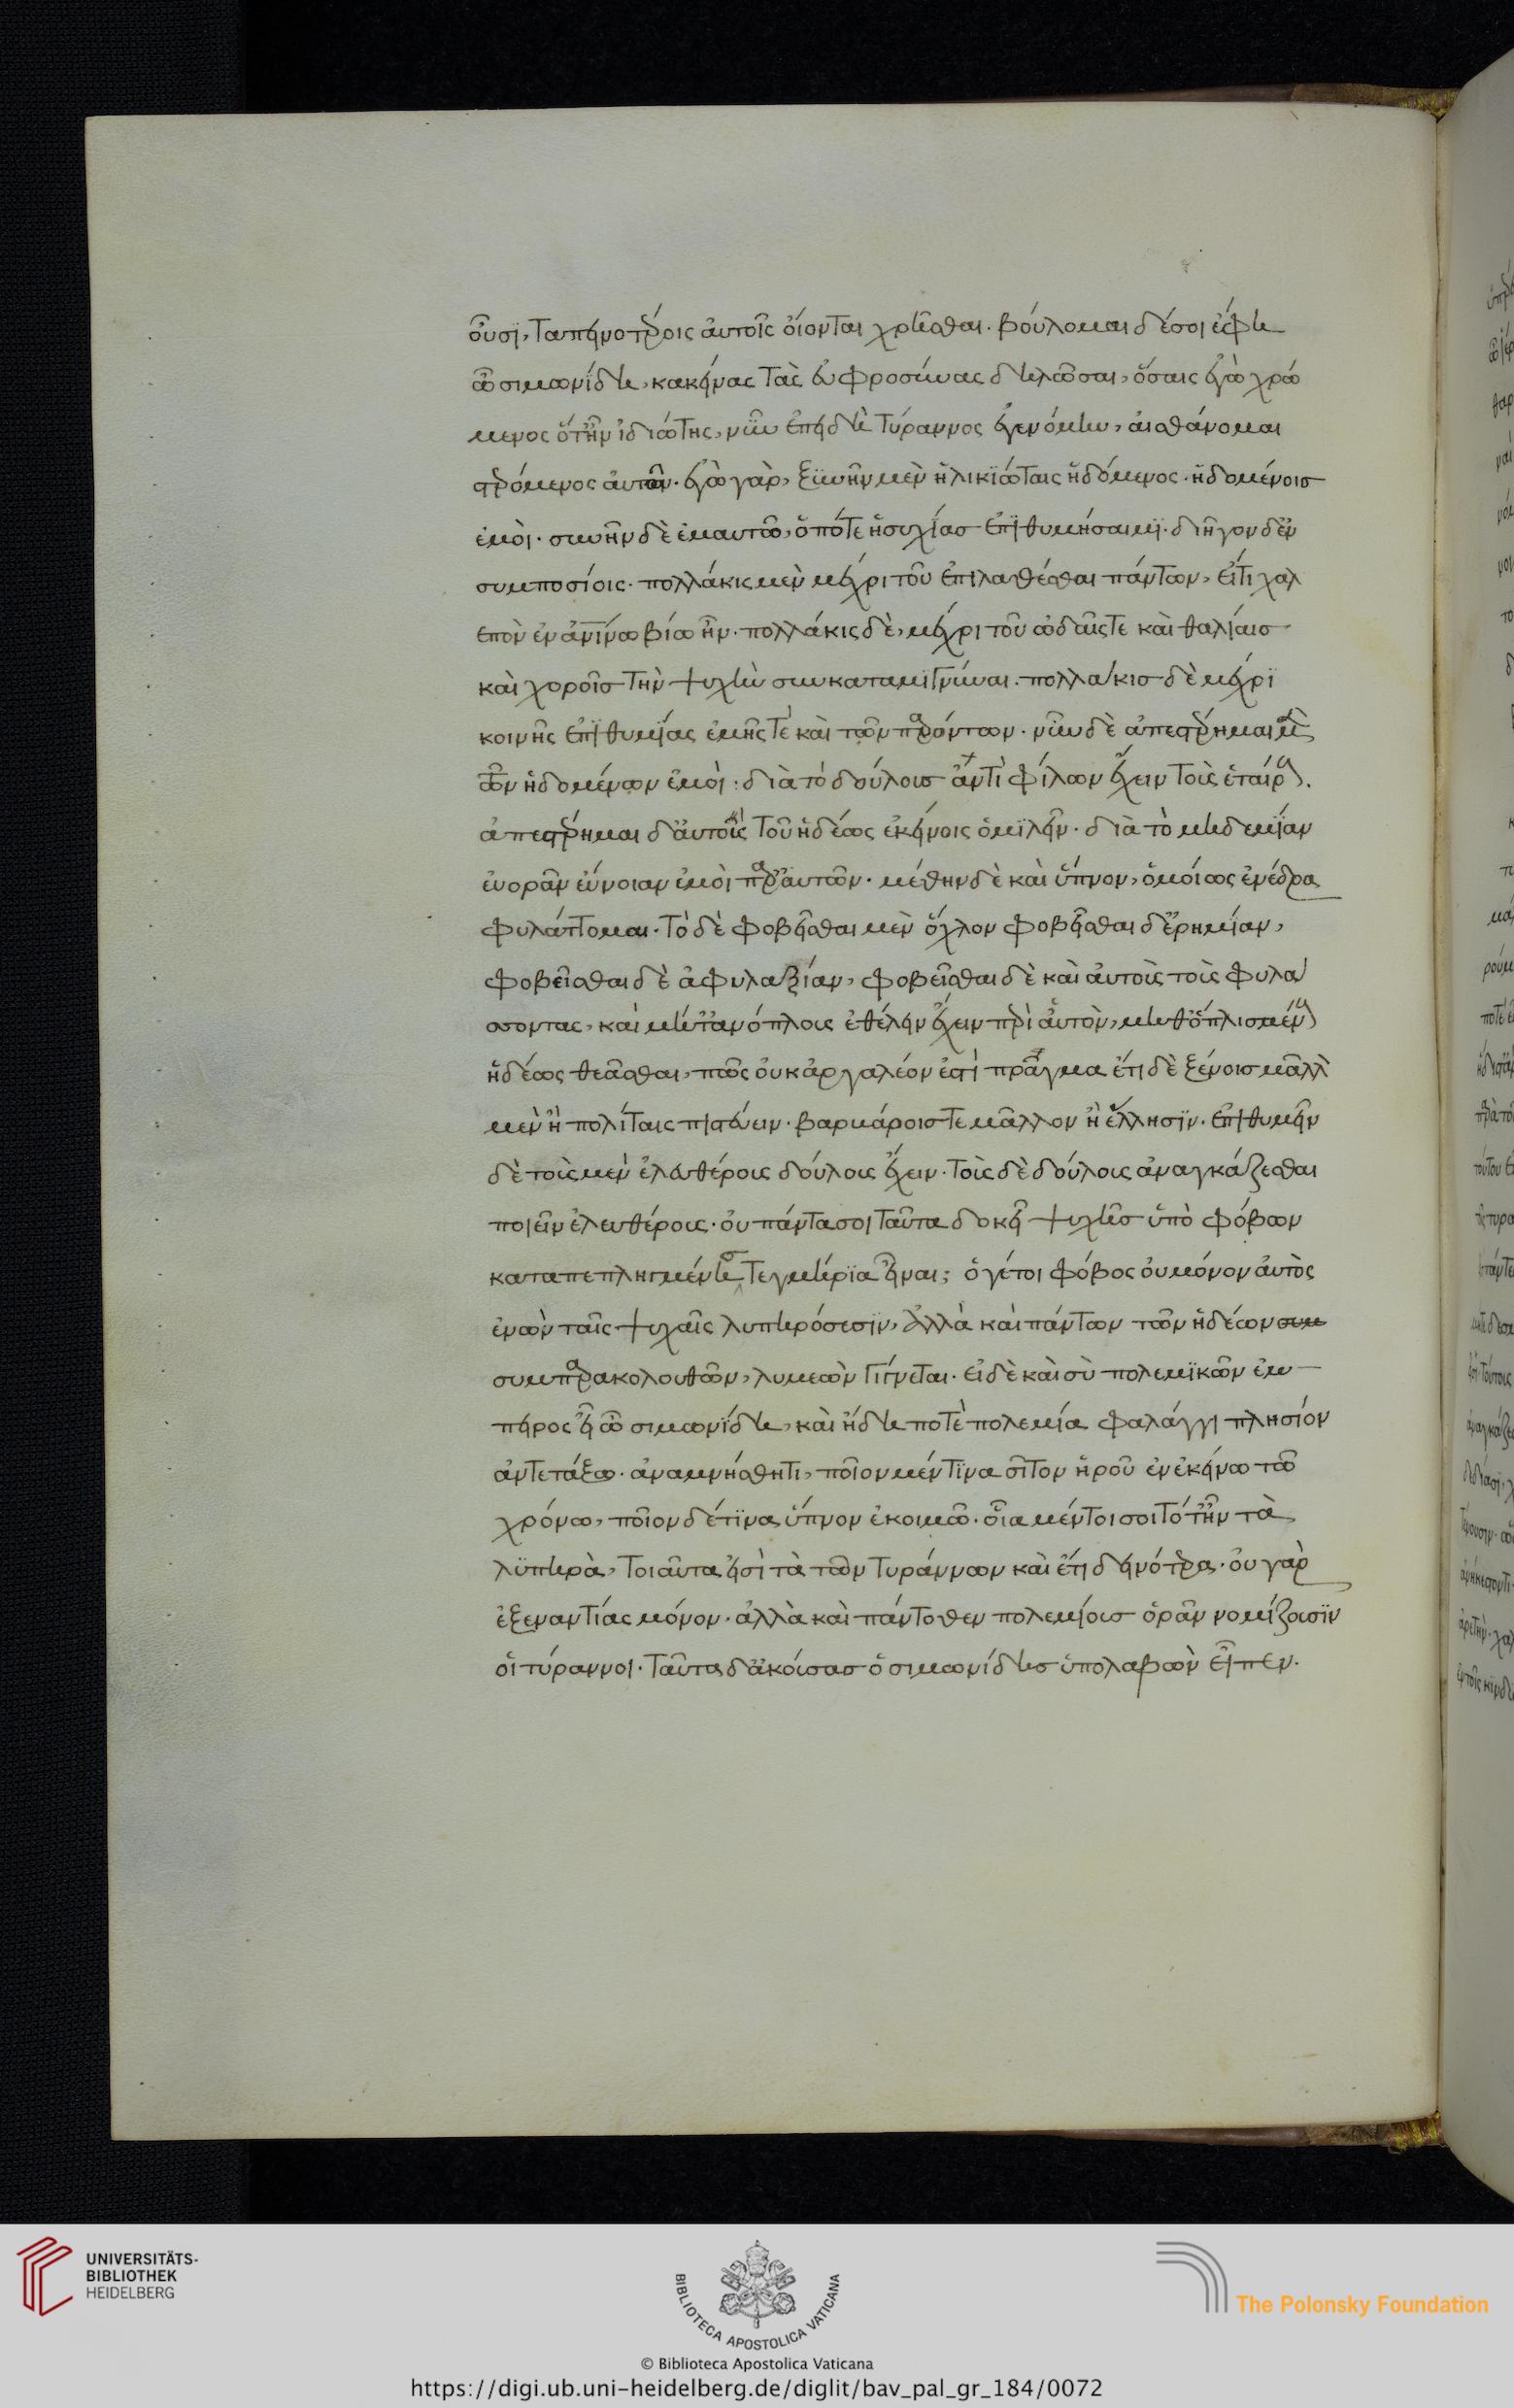 οὖσι, ταπεινοτέροις αὐτοῖς οἴονται χρῆσθαι. βούλομαι δέ σοι ἔφη
ὦ σιμωνίδη, κακείνας τὰς εὐφροσύνας δηλῶσαι, ὅσαις ἐγὼ χρώ
μενος ὅτ' ἦν ἰδιώτης, νῦν ἐπειδὴ τύραννος ἐγενόμην, αἰσθάνομαι
στερόμενος αὐτῶν. ἐγὼ γὰρ, ξυνῆν μὲν ἡλικιώταις ἡδόμενος. ἡδομένοισ
ἐμοὶ. συνῆν δὲ ἐμαυτῶ, ὁπότε ἡσυχίασ ἐπιθυμήσαιμι. διῆγον δ' ἐν
συμποσίοις. πολλάκις μὲν μέχρι τοῦ ἐπιλαθέσθαι πάντων, εἴ τι χαλ
επὸν ἐν ἀνίνω βίω ἦν. πολλάκις δὲ, μέχρι τοῦ ὠδαῖς τε καὶ θαλίαισ
καὶ χοροῖσ τὴν ψυχὴν συνκαταμιγνύναι. πολλάκισ δὲ μέχρι
κοινῆς ἐπιθυμίας ἐμῆς τὲ καὶ τῶν παρόντων. νῦν δὲ ἀπεστέρημαι μὲν
τῶν ἡδομένων ἐμοὶ: διὰ τὸ δούλουσ ἀντὶ φίλων ἔχειν τοὺς ἑταίρους.
ἀπεστέρημαι δ' αὐτοῖς τοῦ ἡδέως ἐκείνοις ὁμιλεῖν. διὰ τὸ μηδεμίαν
ἐνορᾶν εὔνοιαν ἐμοὶ παρ' αὐτῶν. μέθην δὲ καὶ ὕπνον, ὁμοίως ἐνέδρα
φυλάττομαι. τὸ δὲ φοβεῖσθαι μὲν ὄχλον φοβεῖσθαι δ' ἐρημίαν,
φοβεῖσθαι δὲ ἀφυλαξίαν, φοβεῖσθαι δὲ καὶ αὐτοὺς τοὺς φυλά
σσοντας, καὶ μήτ' ἀνόπλους ἐθέλειν ἔχειν περὶ αὐτὸν, μηθ' ὁπλισμένους
ἡδέως θεᾶσθαι, πῶς οὐκ ἀργαλέον ἐστὶ πρᾶγμα ἔτι δὲ ξένοισ μᾶλλ
μὲν ἢ πολίταις πιστεύειν. βαρβάροισ τε μᾶλλον ἢ ἕλλησιν. ἐπιθυμεῖν
δὲ τοὺς μὲν ἐλευθέρους δούλους ἔχειν. τοὺς δὲ δούλους ἀναγκάζεσθαι
ποιεῖν ἐλευθέρους. οὐ πάντα σοι ταῦτα δοκεῖ ψυχῆσ ὑπὸ φόβων
καταπεπληγμένησ τεκμήρια εἶναι; ὅ γέ τοι φόβος οὐ μόνον αὐτὸς
ἐνὼν ταῖς ψυχαῖς λυπηρός ἐσιν, ἀλλὰ καὶ πάντων τῶν ἡδέων συμ
συμπαρακολουθῶν, λυμεὼν γίγνεται. εἰ δὲ καὶ σὺ πολεμικῶν ἔμ
πειρος εἶ ὦ σιμωνίδη, καὶ ἤδη ποτὲ πολεμία φαλάγγι πλησίον
ἀντετάξω. ἀναμνήσθητι, ποῖον μέν τινα σῖτον ἡροῦ ἐν ἐκείνω τῶ
χρόνω, ποῖον δέ τινα ὕπνον ἐκοιμῶ. οἷα μέντοι σοι τότ' ἦν τὰ
λυπηρὰ, τοιαῦτα ἐστὶ τὰ τῶν τυράννων καὶ ἔτι δεινότερα. οὐ γὰρ
ἐξεναντίας μόνον. ἀλλὰ καὶ πάντοθεν πολεμίουσ ὁρᾶν νομίζουσιν
οἱ τύραννοι. ταῦτα δ' ἀκούσασ ὁ σιμωνίδησ ὑπολαβὼν εἶπεν.
UNIVERSITÄTS-
BIBLIOTHEK
HEIDELBERG
BIBLIOTECA APOSTOLICA VATICANA
The Polonsky Foundation
© Biblioteca Apostolica Vaticana
https://digi.ub.uni-heidelberg.de/diglit/bav_pal_gr_184/0072